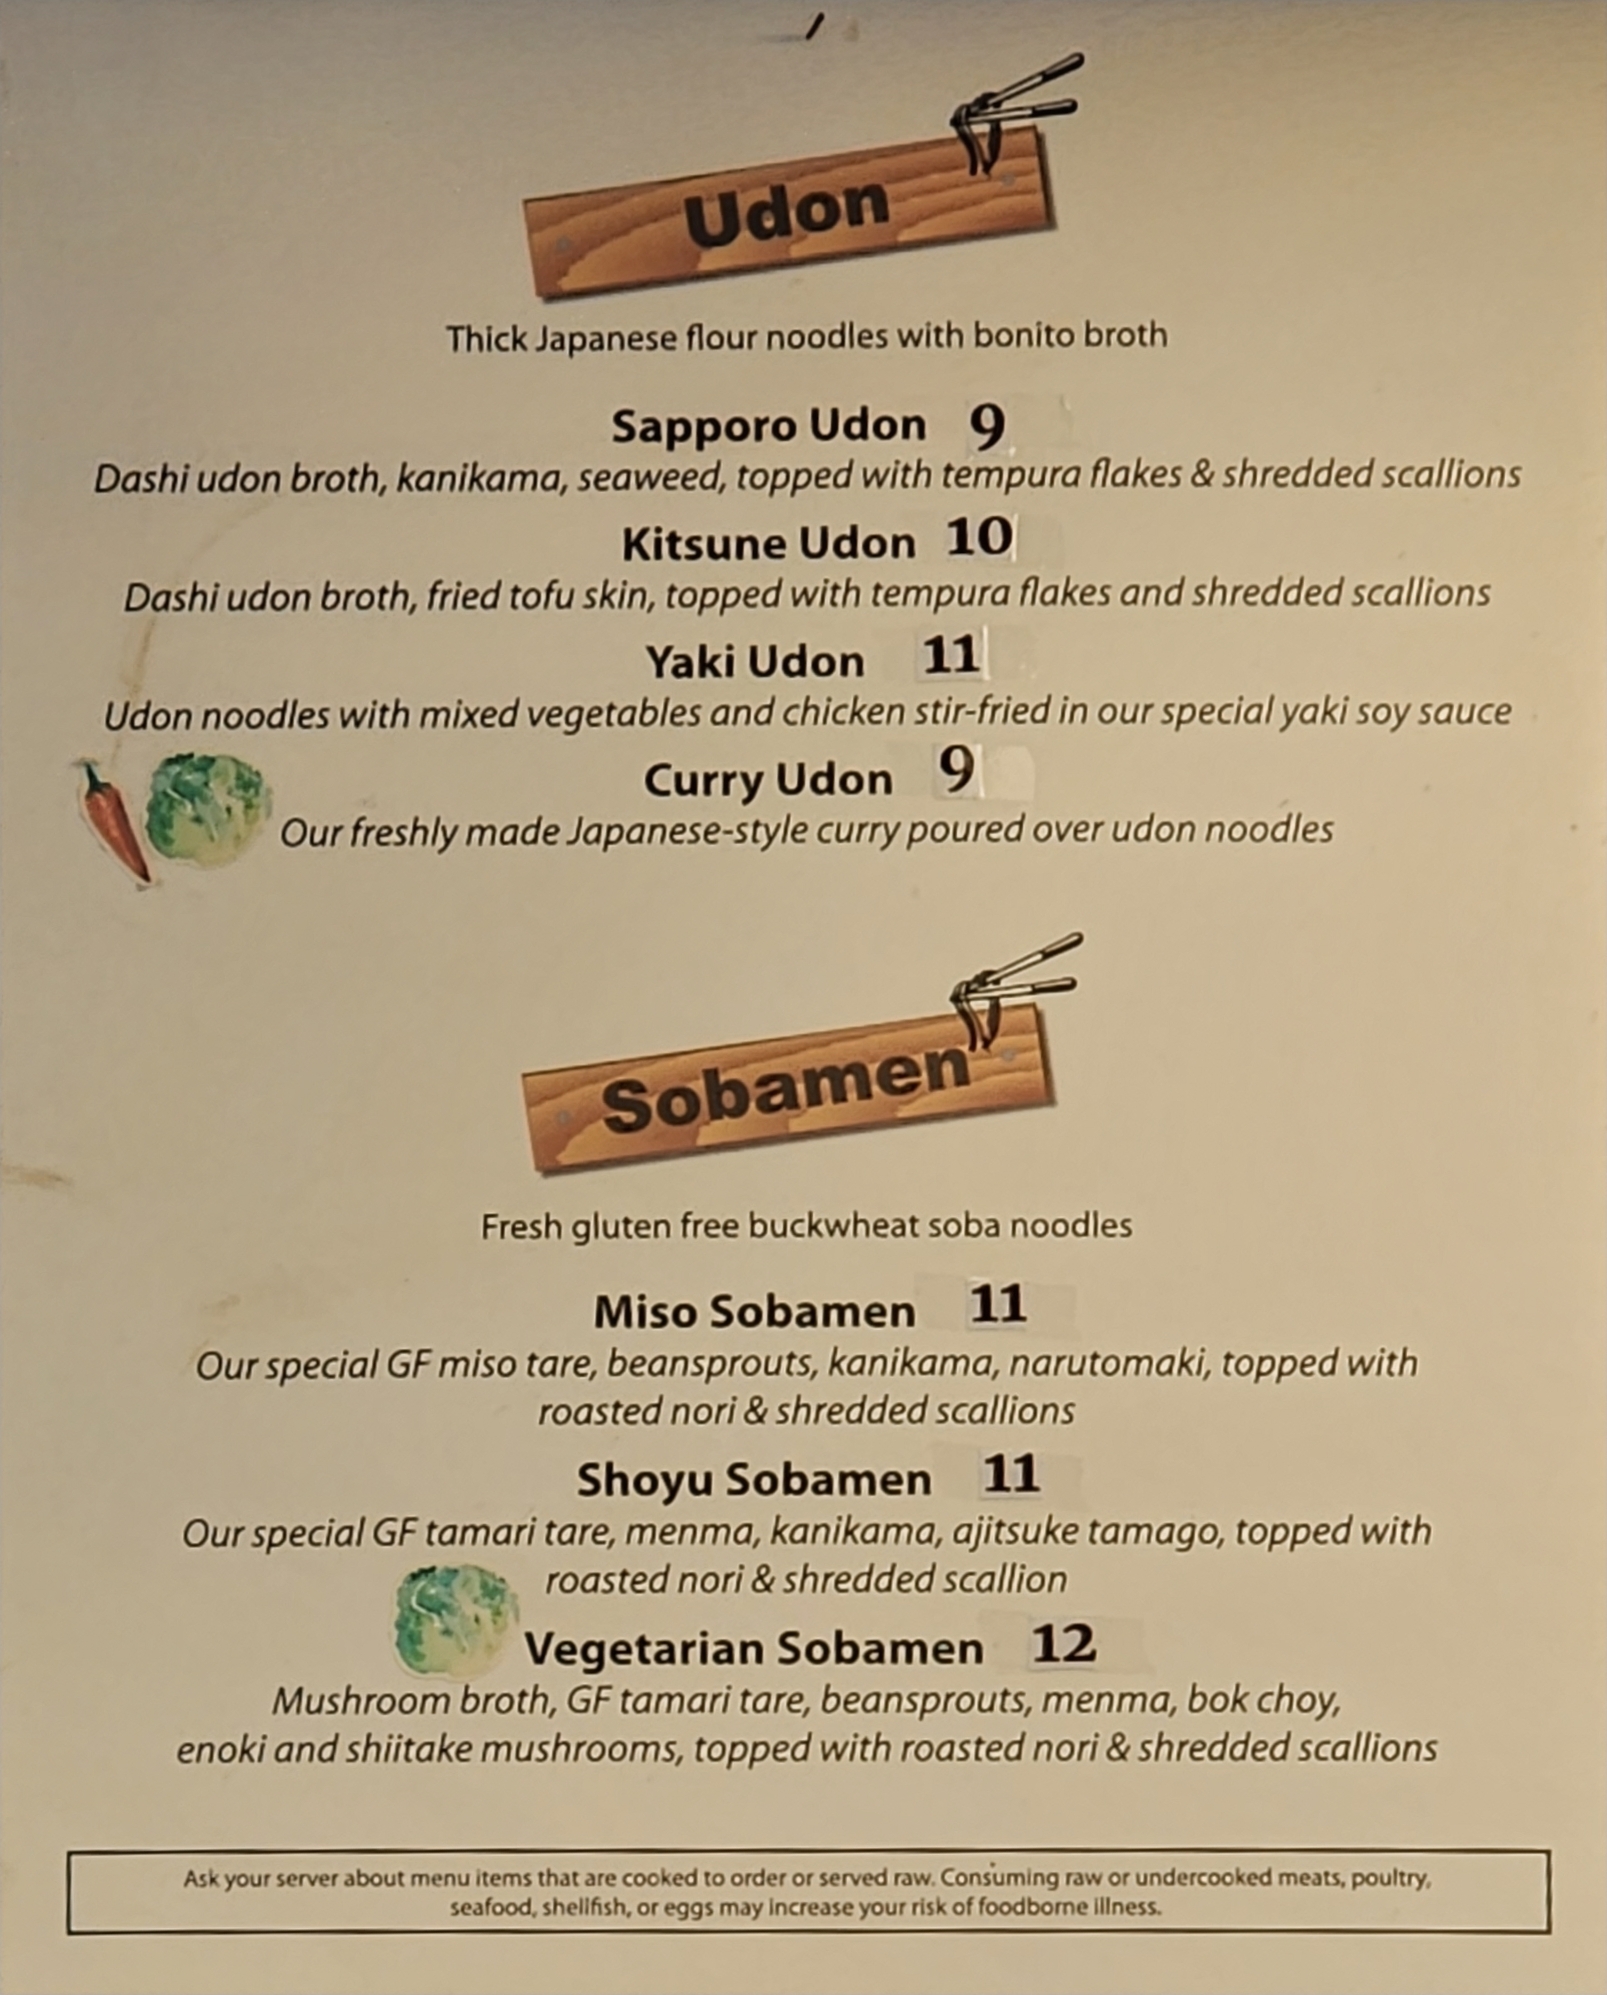 Udon
Thick Japanese flour noodles with bonito broth
Sapporo Udon 9
Dashi udon broth, kanikama, seaweed, topped with tempura flakes & shredded scallions
Kitsune Udon 10
Dashi udon broth, fried tofu skin, topped with tempura flakes and shredded scallions
Yaki Udon 11
Udon noodles with mixed vegetables and chicken stir-fried in our special yaki soy sauce
Curry Udon 9
Our freshly made Japanese-style curry poured over udon noodles
Sobamen
Fresh gluten free buckwheat soba noodles
Miso Sobamen 11
Our special GF miso tare, beansprouts, kanikama, narutomaki, topped with
roasted nori & shredded scallions
Shoyu Sobamen 11
Our special GF tamari tare, menma, kanikama, ajitsuke tamago, topped with
roasted nori & shredded scallion
Vegetarian Sobamen 12
Mushroom broth, GF tamari tare, beansprouts, menma, bok choy,
enoki and shiitake mushrooms, topped with roasted nori & shredded scallions
Ask your server about menu items that are cooked to order or served raw. Consuming raw or undercooked meats, poultry,
seafood, shellfish, or eggs may increase your risk of foodborne illness.